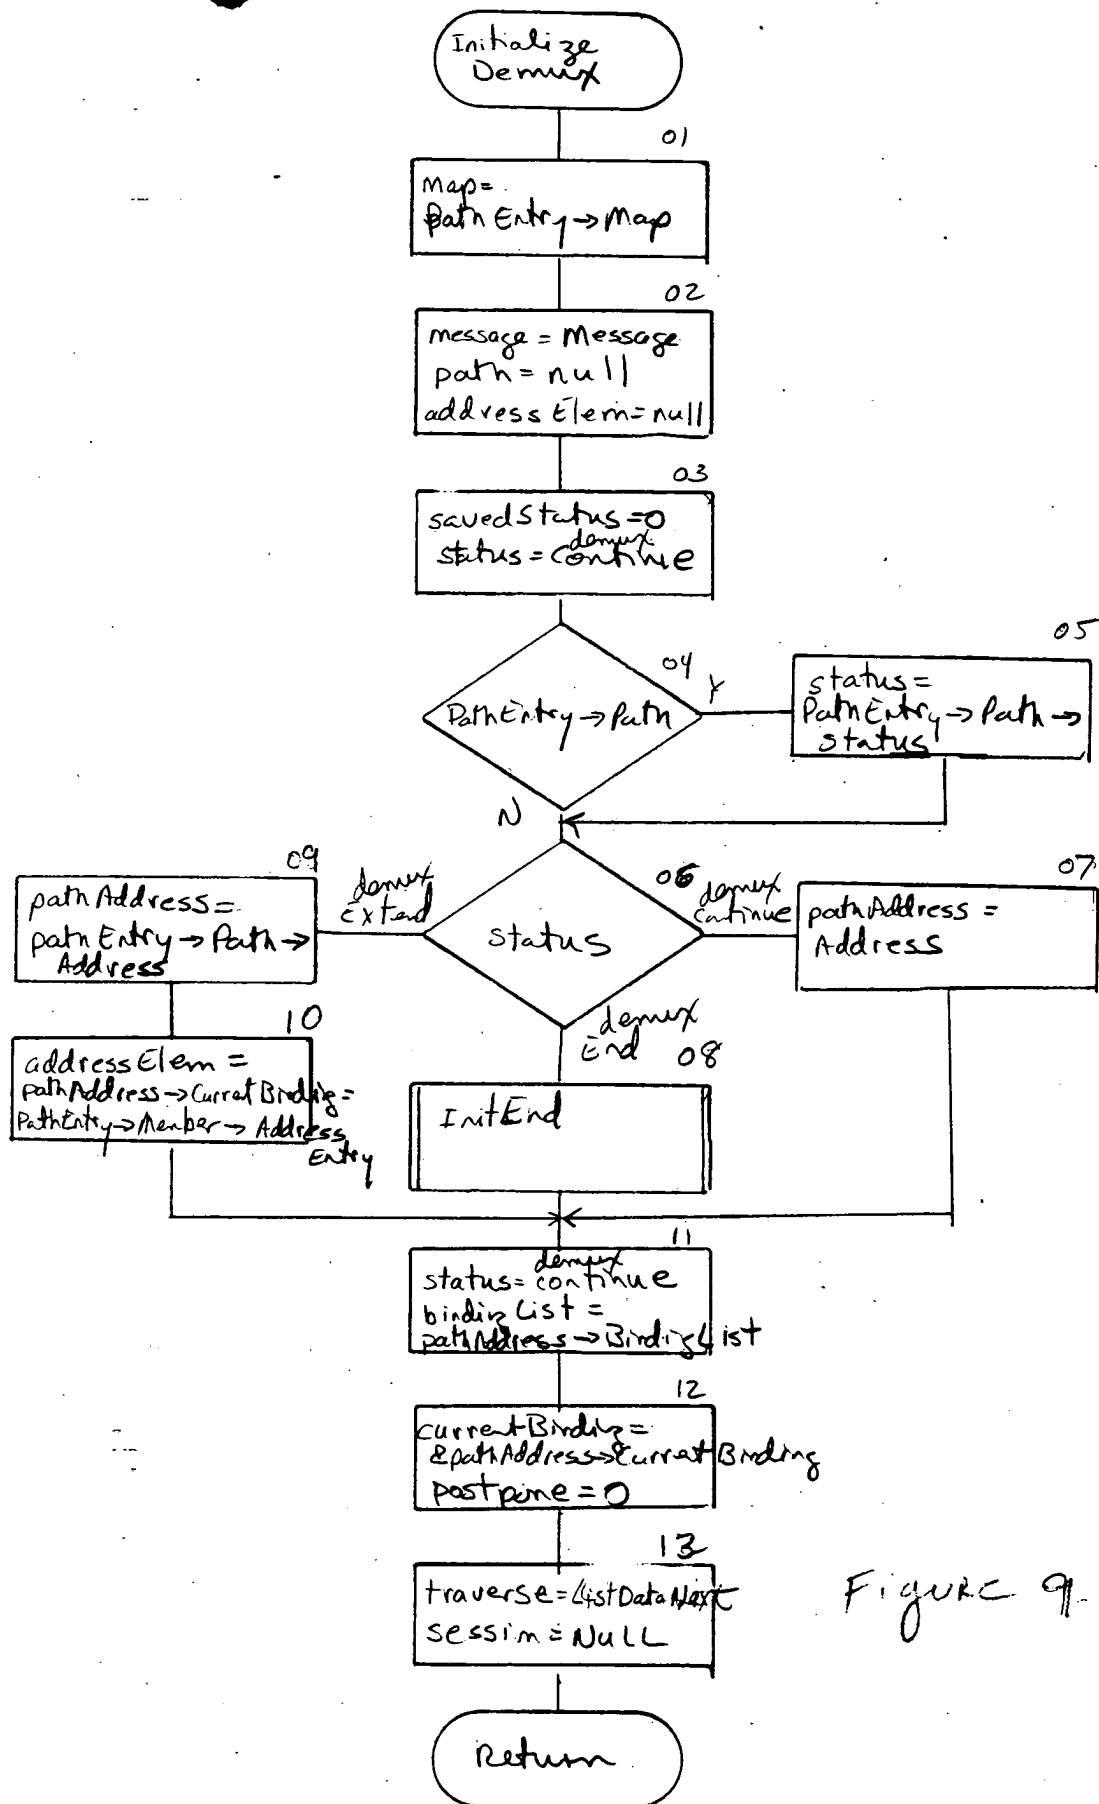 Initialize
Demux
01
Map=
Path Entry → Map
02
message = Message
path = null
address Elem = null
03
savedStatus = 0
demux
status = Continue
04
PathEntry → Path
Y
05
status =
PathEntry → Path →
status
N
06
status
demux
Extend
demux
continue
demux
End
09
pathAddress =
pathEntry → Path →
Address
10
addressElem =
pathAddress → CurrentBinding =
PathEntry → Member → Address
Entry
07
pathAddress =
Address
08
InitEnd
11
demux
status = continue
binding List =
pathAddress → BindingList
12
currentBinding =
&pathAddress → CurrentBinding
postpone = 0
13
traverse = ListDataNext
session = NULL
Return
Figure 9